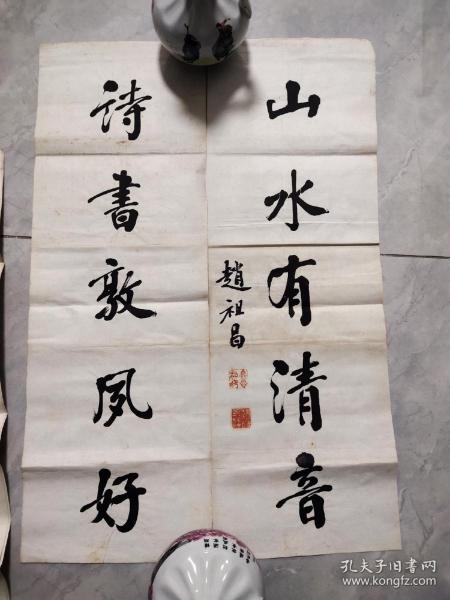 山水有清音
詩書敦夙好
趙祖昌
孔夫子旧书网
www.kongfz.com